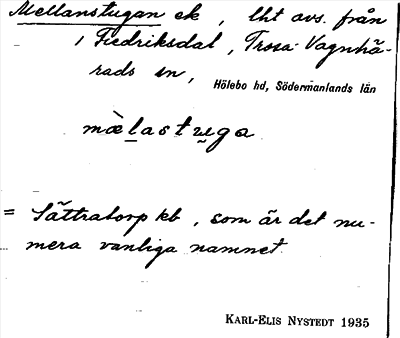 Mellanstugan ek, lht avs. från
1 Fredriksdal, Trosa-Vagnhä-
rads sn,
Hölebo hd, Södermanlands län
mæ̀lastuga
= Sättratorp kb, som är det nu-
mera vanliga namnet.
KARL-ELIS NYSTEDT 1935